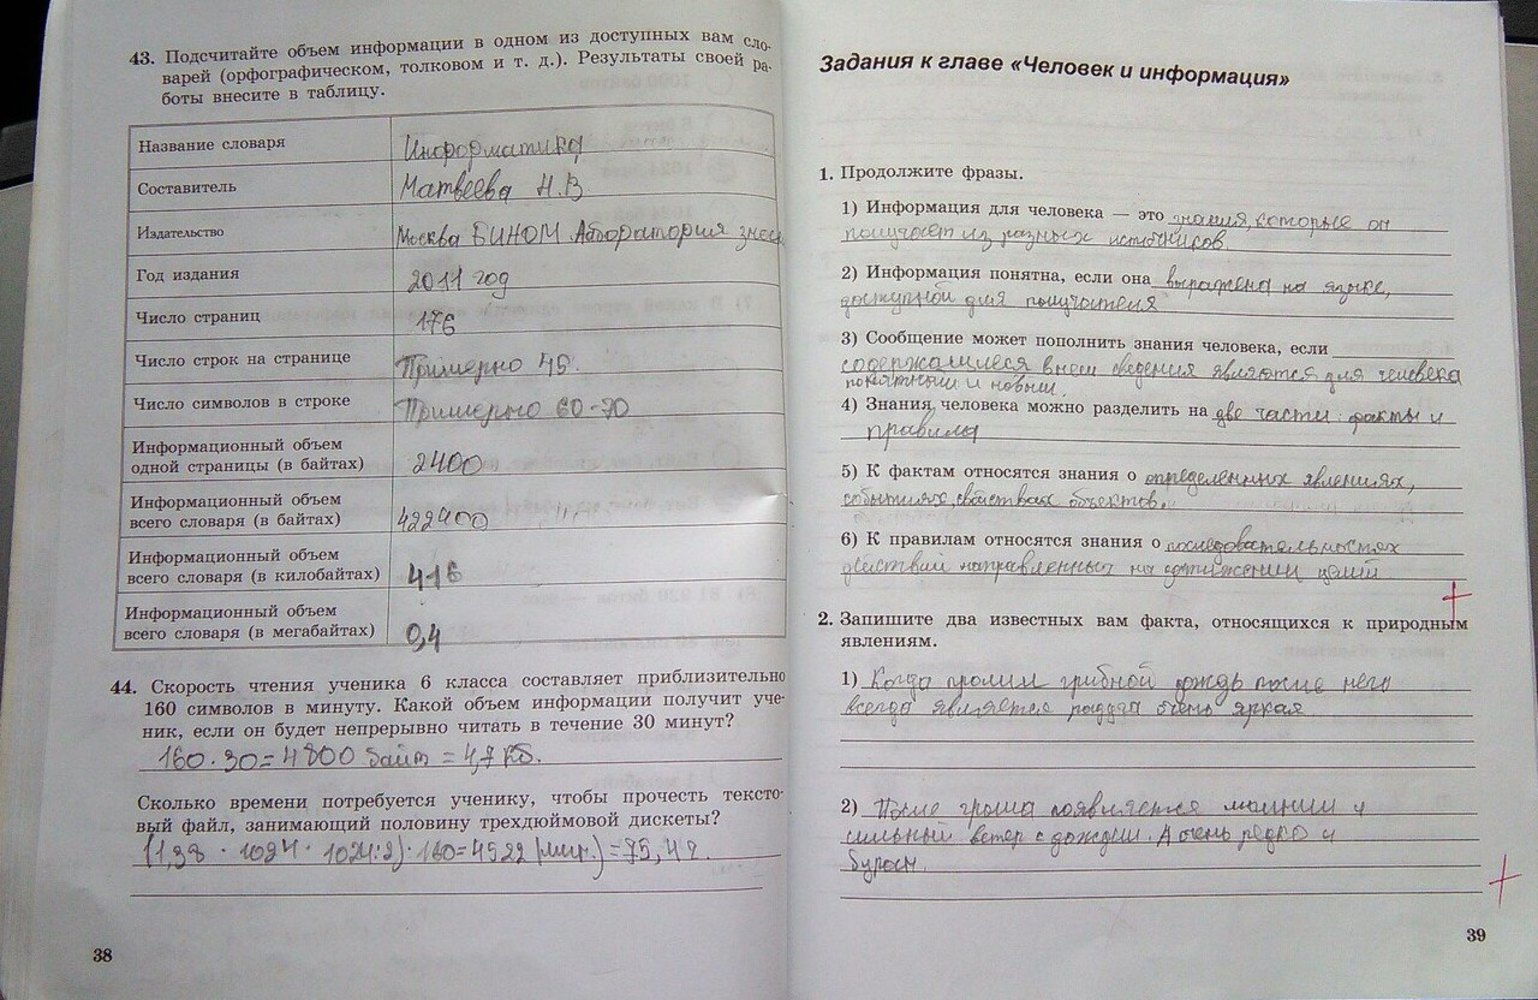 43. Подсчитайте объем информации в одном из доступных вам сло-
варей (орфографическом, толковом и т. д.). Результаты своей ра-
боты внесите в таблицу.
Название словаря Информатика
Составитель Матвеева Н.В.
Издательство Москва БИНОМ Лаборатория
Год издания 2011 год
Число страниц 176
Число строк на странице Примерно 45.
Число символов в строке Примерно 60-70
Информационный объем
одной страницы (в байтах) 2400
Информационный объем
всего словаря (в байтах) 422400
Информационный объем
всего словаря (в килобайтах) 416
Информационный объем
всего словаря (в мегабайтах) 0,4
44. Скорость чтения ученика 6 класса составляет приблизительно
160 символов в минуту. Какой объем информации получит уче-
ник, если он будет непрерывно читать в течение 30 минут?
160·30=4800 байт = 4,7 Кб.
Сколько времени потребуется ученику, чтобы прочесть тексто-
вый файл, занимающий половину трехдюймовой дискеты?
(1,38 · 1024 · 1024:2):160=4522 (мин.)=75,4ч.
38
Задания к главе «Человек и информация»
1. Продолжите фразы.
1) Информация для человека — это знания, которые он
получает из разных источников.
2) Информация понятна, если она выражена на языке,
доступной для получателя
3) Сообщение может пополнить знания человека, если
содержащиеся в нем сведения являются для человека
понятными и новыми.
4) Знания человека можно разделить на две части: факты и
правила
5) К фактам относятся знания о определенных явлениях,
событиях, свойствах объектов.
6) К правилам относятся знания о последовательностях
действий направленных на достижении целий
2. Запишите два известных вам факта, относящихся к природным
явлениям.
1) Когда грибной дождь после него
всегда является радуга очень яркая
2) После грома появляется молнии и
сильный ветер с дождем. А очень редко и
39